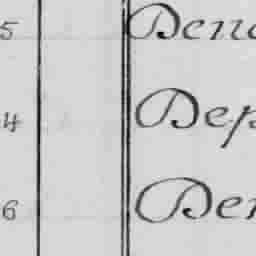 5 Dend
4 Dep
6 Den